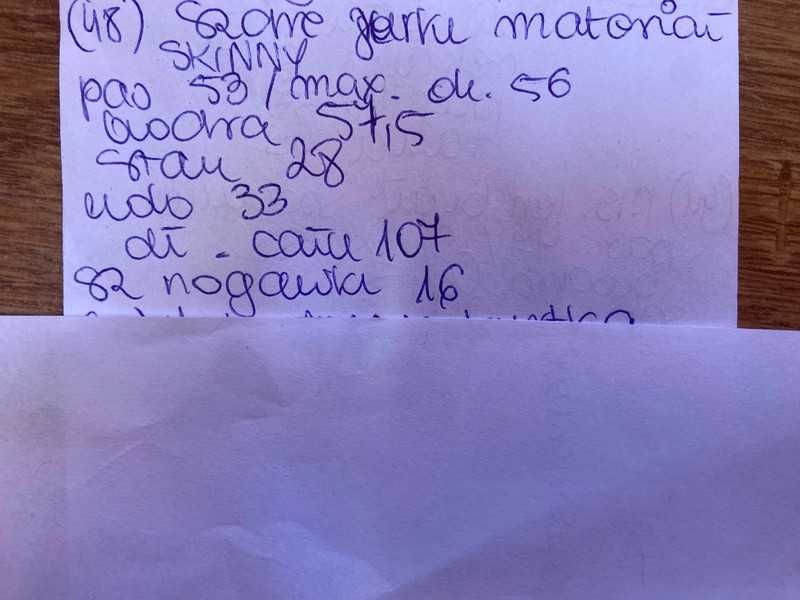 (48) Szare jeansy materiał
SKINNY
pas 53 / max. ok. 56
biodra 57,5
stan 28
udo 33
dł. całk 107
sz nogawka 16